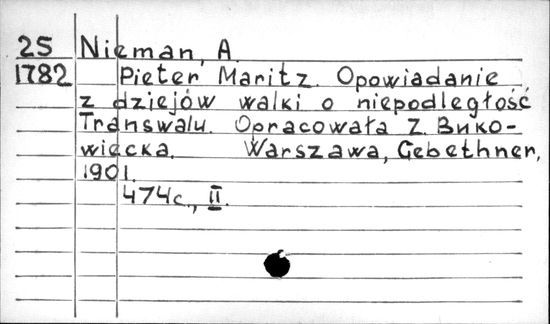 25 Nieman, A.
1782 Pieter Maritz. Opowiadanie
z dziejów walki o niepodległość
Transwalu. Opracowała Z. Вuko-
wiecka. Warszawa, Gebethner,
1901.
474c., II.